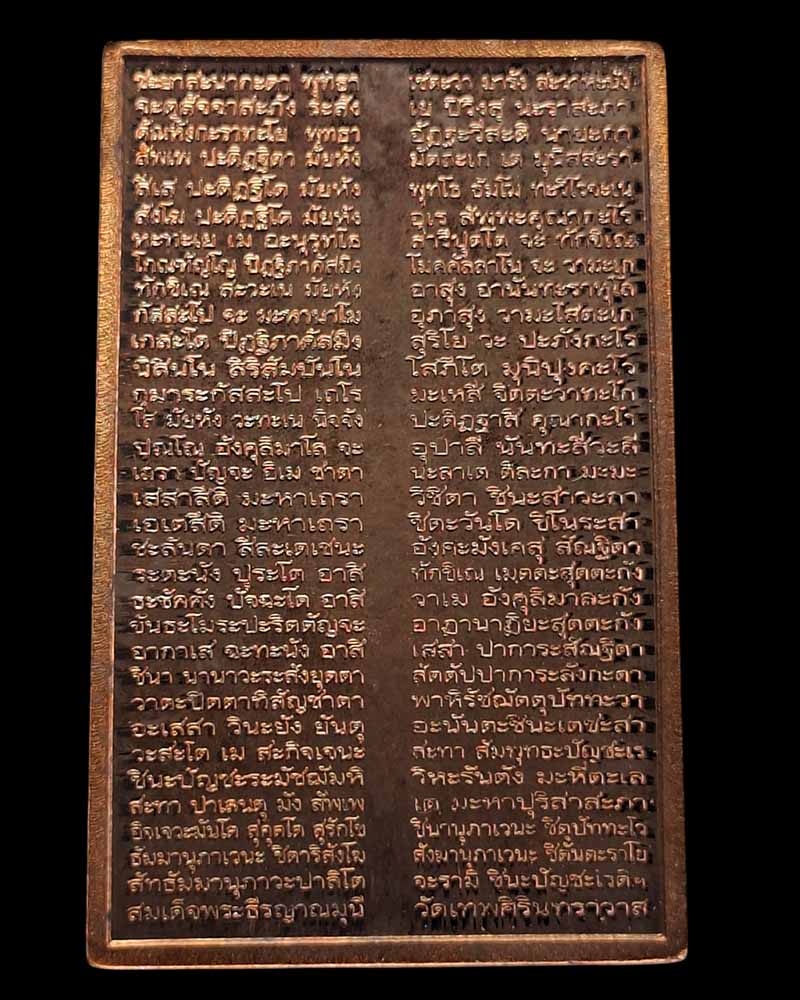 ชะยาสะนากะตา พุทธา เชตะวา มารัง สะวาหะนัง
จะตุสัจจาสะภัง ระสัง เย ปิวิงสุ นะราสะภา
ตัณหังกะราทะโย พุทธา อัฏฐะวีสะติ นายะกา
สัพเพ ปะติฏฐิตา มัยหัง มัตถะเก เต มุนิสสะรา
สีเส ปะติฏฐิโต มัยหัง พุทโธ ธัมโม ทะวิโรจะเน
สังโฆ ปะติฏฐิโต มัยหัง อุเร สัพพะคุณากะโร
หะทะเย เม อะนุรุทโธ สารีปุตโต จะ ทักขิเณ
โกณฑัญโญ ปิฏฐิภาคัสมิง โมคคัลลาโน จะ วามะเก
ทักขิเณ สะวะเน มัยหัง อาสุง อานันทะราหุโล
กัสสะโป จะ มะหานาโม อุภาสุง วามะโสตะเก
เกสะโต ปิฏฐิภาคัสมิง สุริโย วะ ปะภังกะโร
นิสินโน สิริสัมปันโน โสภิโต มุนิปุงคะโว
กุมาระกัสสะโป เถโร มะเหสี จิตตะวาทะโก
โส มัยหัง วะทะเน นิจจัง ปะติฏฐาสิ คุณากะโร
ปุณโณ อังคุลิมาโล จะ อุปาลี นันทะสีวะลี
เถรา ปัญจะ อิเม ชาตา นะลาเต ตีละกา มะมะ
เสสาสีติ มะหาเถรา วิชิตา ชินะสาวะกา
เอเตสีติ มะหาเถรา ชิตะวันโต ชิโนระสา
ชะลันตา สีละเตเชนะ อังคะมังเคสุ สัณฐิตา
ระตะนัง ปุระโต อาสิ ทักขิเณ เมตตะสุตตะกัง
ธะชัคคัง ปัจฉะโต อาสิ วาเม อังคุลิมาละกัง
ขันธะโมระปะริตตัญจะ อาฏานาฏิยะสุตตะกัง
อากาเส ฉะทะนัง อาสิ เสสา ปาการะสัณฐิตา
ชินา นานาวะระสังยุตตา สัตตัปปาการะลังกะตา
วาตะปิตตาทิสัญชาตา พาหิรัชฌัตตุปัททะวา
อะเสสา วินะยัง ยันตุ อะนันตะชินะเตชะสา
วะสะโต เม สะกิจเจนะ สะทา สัมพุทธะปัญชะเร
ชินะปัญชะระมัชฌัมหิ วิหะรันตัง มะหีตะเล
สะทา ปาเลนตุ มัง สัพเพ เต มะหาปุริสาสะภา
อิจเจวะมันโต สุคุตโต สุรักโข ชินานุภาเวนะ ชิตุปัททะโว
ธัมมานุภาเวนะ ชิตาริสังโฆ สังฆานุภาเวนะ ชิตันตะราโย
สัทธัมมานุภาวะปาลิโต จะรามิ ชินะปัญชะเรติฯ
สมเด็จพระธีรญาณมุนี วัดเทพศิรินทราวาส